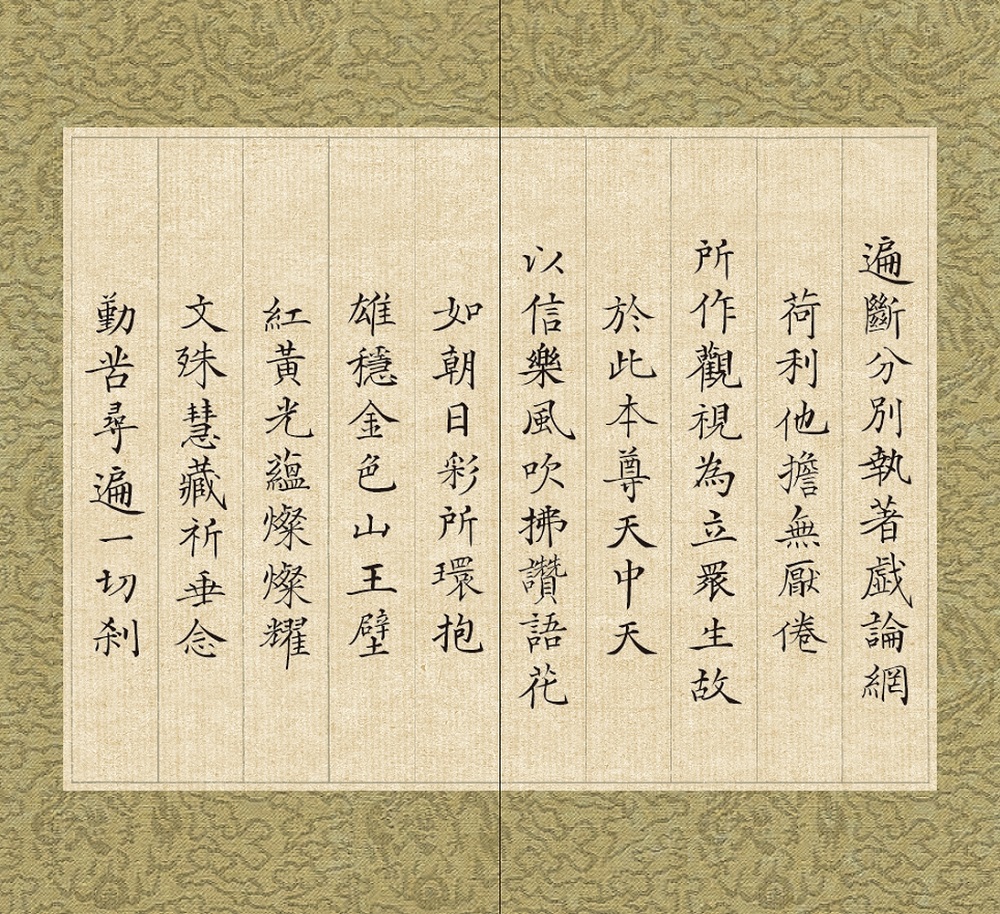 遍斷分別執著戲論網
荷利他擔無厭倦
所作觀視為立眾生故
於此本尊天中天
以信樂風吹拂讚語花
如朝日彩所環抱
雄穩金色山王壁
紅黃光蘊燦燦耀
文殊慧藏祈垂念
勤苦尋遍一切剎